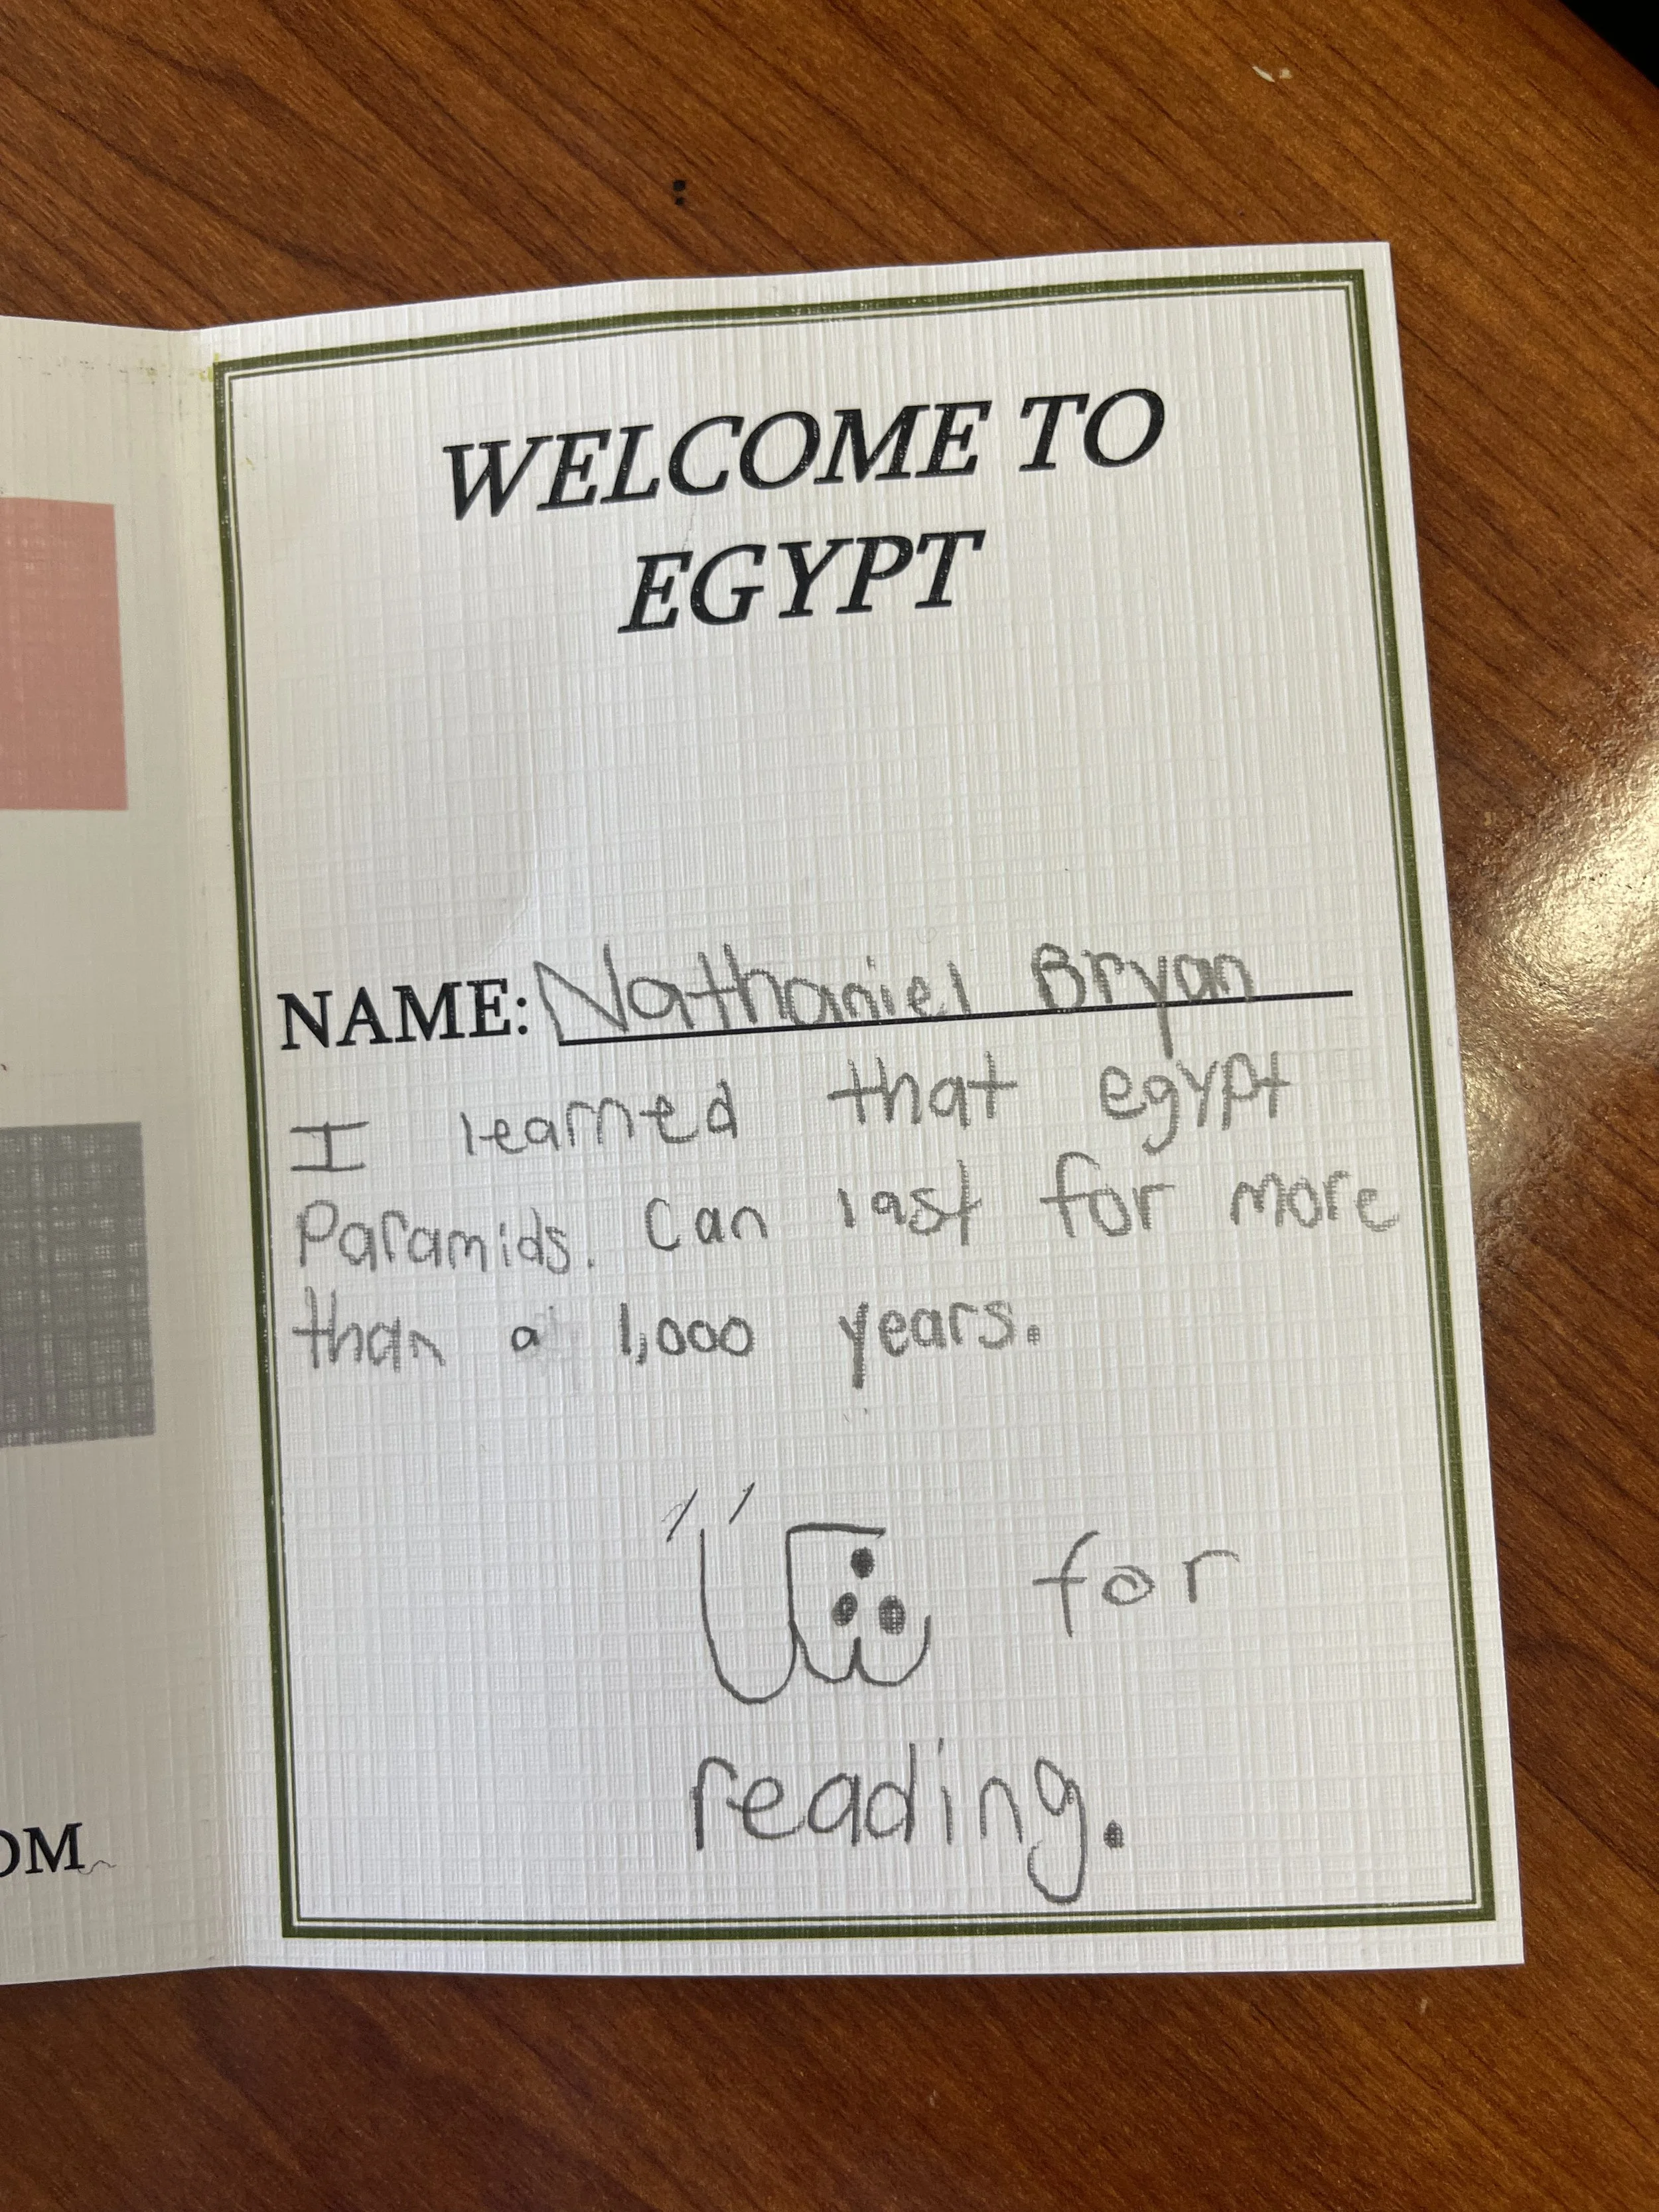 WELCOME TO
EGYPT
NAME: Nathaniel Bryan
I learned that egypt
Paramids. Can last for more
than a 1,000 years.
for
reading.
OM